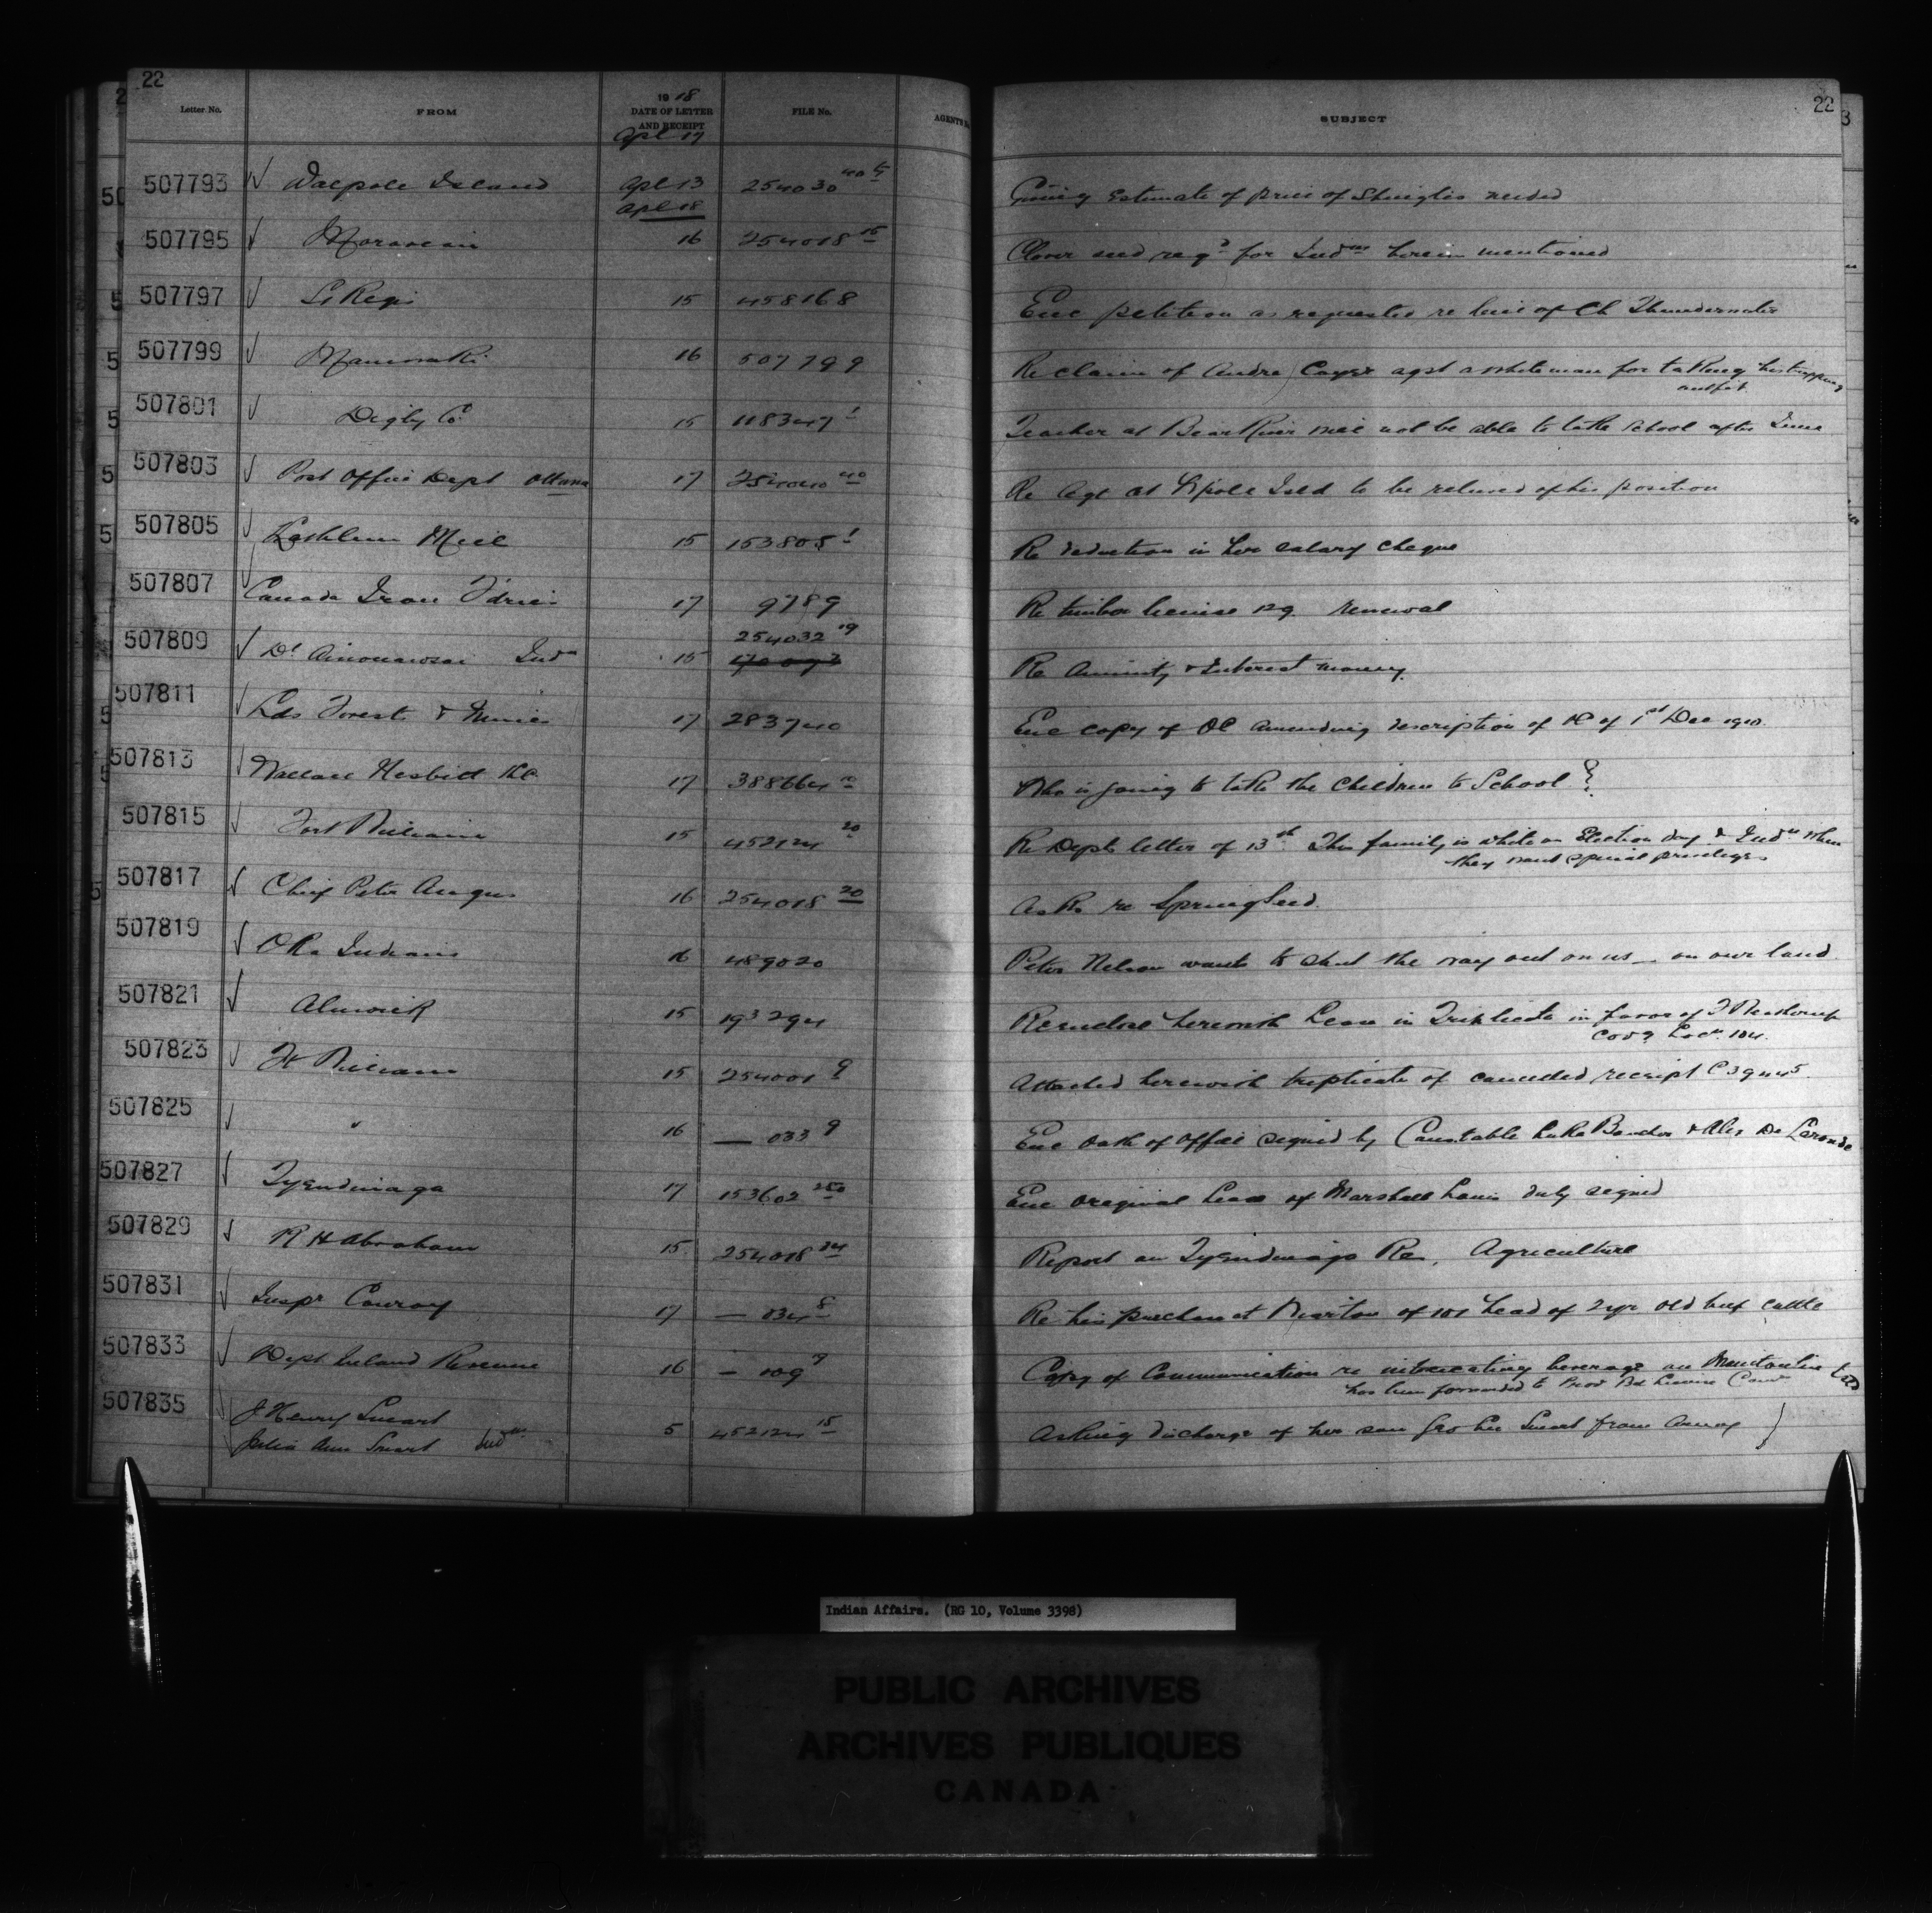 22
22
Letter No. FROM 1918 DATE OF LETTER AND RECEIPT FILE No. AGENTS SUBJECT
Apl 17
507793 Walpole Island Apl 13 254030 Giving Estimate of price of Shingles needed
Apl 18
507795 Moravian 16 254018 15 Clover seed reqd for Indns herein mentioned
507797 St Regis 15 458168 Enc petition as requested re of Ch
507799 Maniwaki 16 507799 Re claim of Andre Cayer agst a white man for taking his trapping
outfit
507801 Digby Co 15 118347 1 Teacher at Bear River will not be able to take School after June
507803 Post Office Dept Ottawa 17 254040 40 Re Agt at W'pole Isld to be relieved of his position
507805 Kathleen 15 153805 1 Re deduction in her salary cheque
507807 Canada Iron F'dries 17 9789 Re timber license 129 renewal
507809 Indn 15 254032 19 Re Annuity & Interest money
507811 Lds Forests & Mines 17 283740 Enc copy of OC amending description of OC of 1st Dec 1910
507813 Wallace Nesbitt KC 17 388664 Who is going to take the Children to School ?
507815 Fort William 15 452124 20 Re Depts letter of 13th This family is white on Election day & Indns when
they want special privileges
507817 Chief Peter Angus 16 254018 20 Asks re Spring Seed
507819 Oka Indians 16 489020 Peter Nelson wants to shut the way out on us — on our land
507821 Alnwick 15 193294 Re enclose herewith Lease in Triplicate in favor of
507823 Ft William 15 254001 9 Attached herewith triplicate of cancelled receipt C 3945
507825 " 16 — 033 9 Enc Oath of Office signed by Constable Luke Boucher & Alex De Laronde
507827 Tyendinaga 17 153602 250 Enc original Lease of Marshall Lewis duly signed
507829 R H Abraham 15 254018 24 Report on Tyendinaga Re, Agriculture
507831 Inspr Conroy 17 — 034 8 Re his purchase at of 101 head of 2 yr old beef cattle
507833 Dept Inland Revenue 16 — 109 7 Copy of Communication re intoxicating beverage on Manitoulin Isld
has been forwarded to Prov Bd License Comr
507835 J Henry Smart
Julia Ann Smart Indns 5 452124 15 Asking discharge of her son Smart from Army
Indian Affairs. (RG 10, Volume 3398)
PUBLIC ARCHIVES
ARCHIVES PUBLIQUES
CANADA